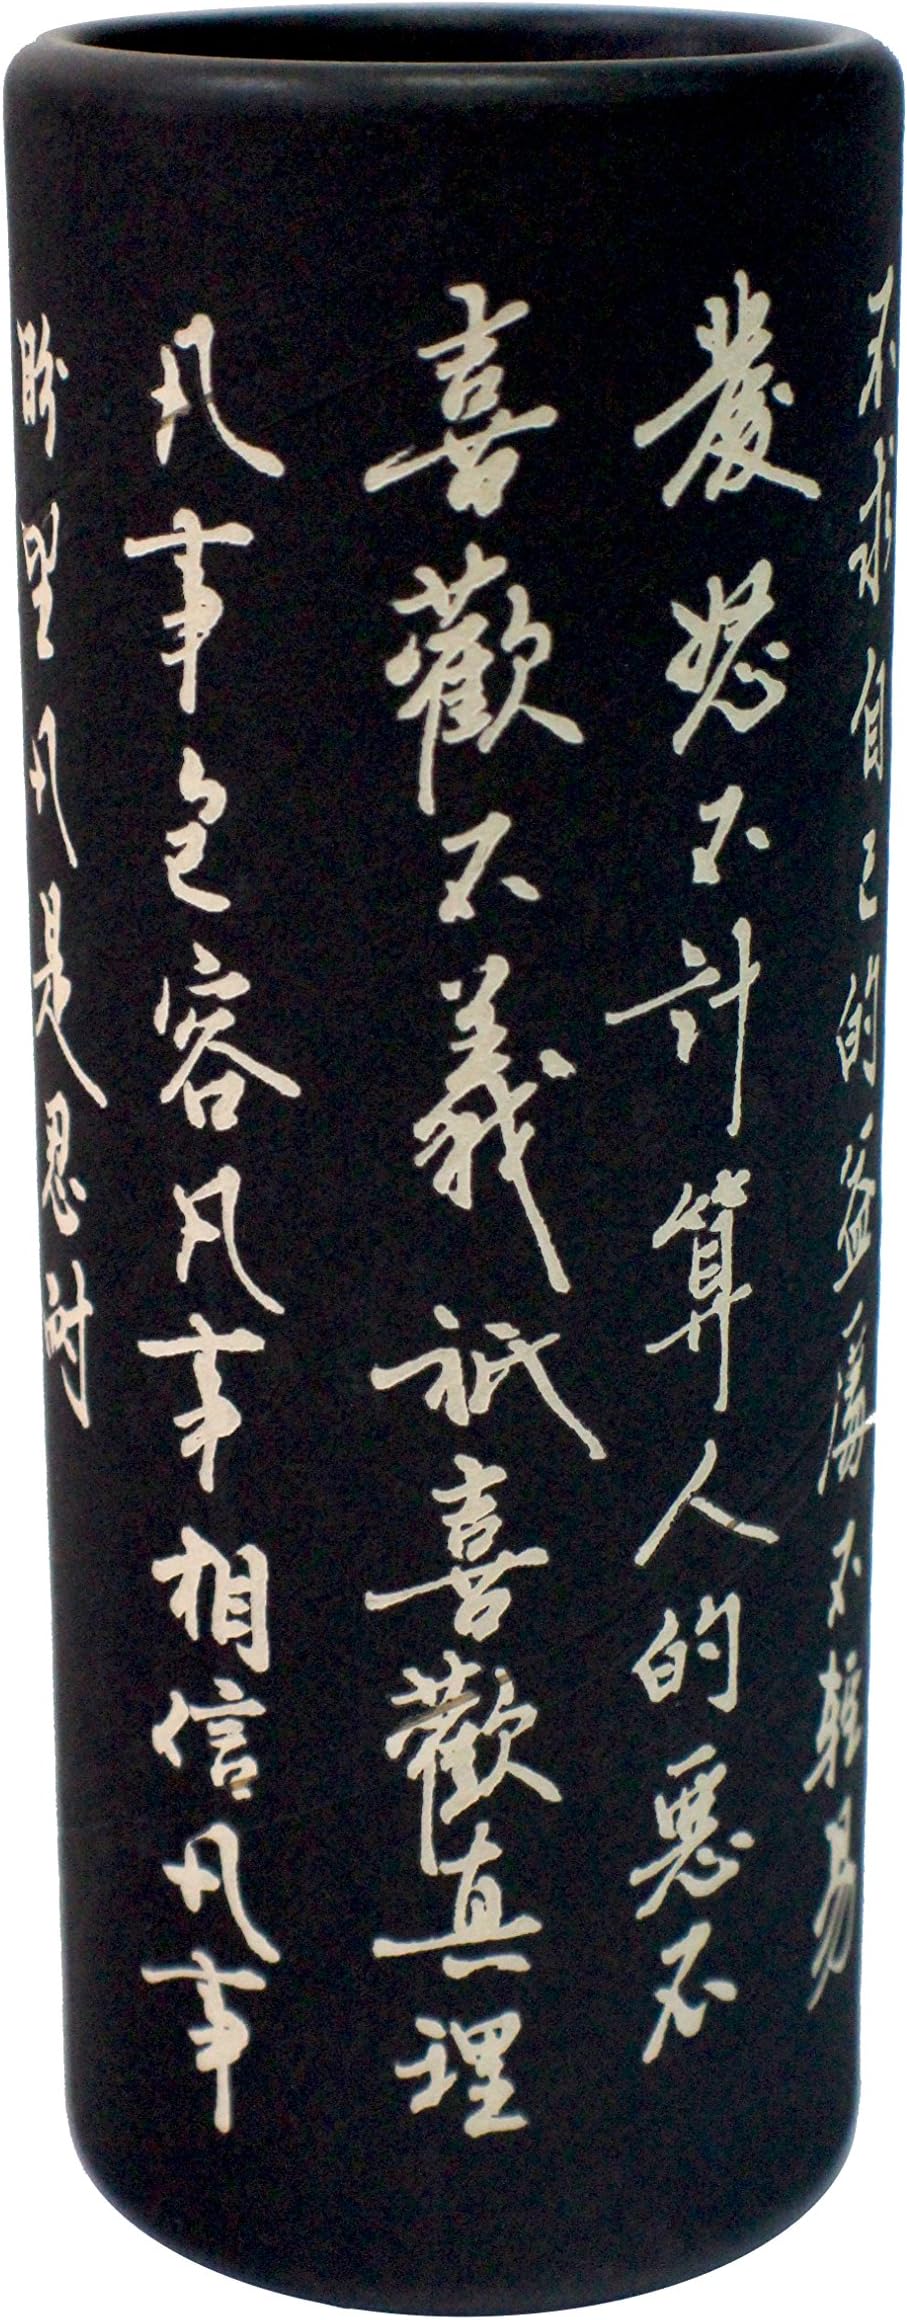 不求自己的益處不輕易
發怒不計算人的惡不
喜歡不義祇喜歡真理
凡事包容凡事相信凡事
盼望凡是忍耐